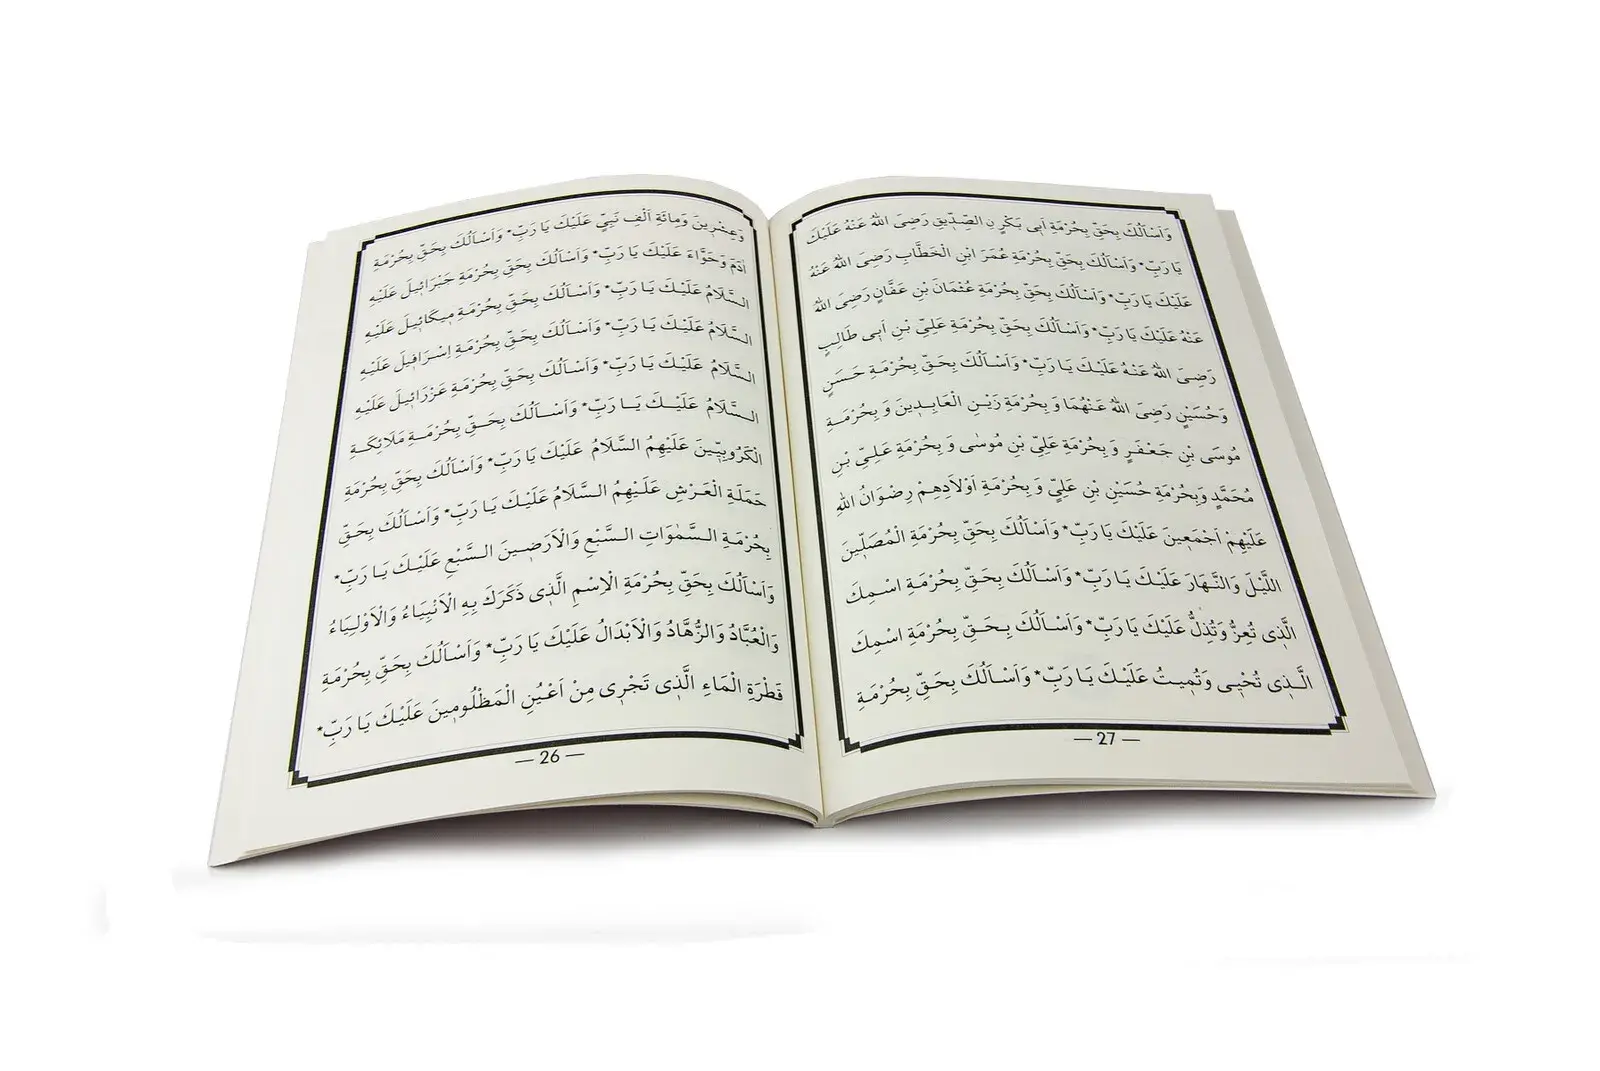 وَعِشْرِينَ وَمِائَةِ اَلْفِ نَبِيٍّ عَلَيْكَ يَا رَبِّ* وَاَسْاَلُكَ بِحَقِّ بِحُرْمَةِ
اٰدَمَ وَحَوَّاءَ عَلَيْكَ يَا رَبِّ* وَاَسْاَلُكَ بِحَقِّ بِحُرْمَةِ جَبْرَائِيلَ عَلَيْهِ
السَّلَامُ عَلَيْكَ يَا رَبِّ* وَاَسْاَلُكَ بِحَقِّ بِحُرْمَةِ مِيكَائِيلَ عَلَيْهِ
السَّلَامُ عَلَيْكَ يَا رَبِّ* وَاَسْاَلُكَ بِحَقِّ بِحُرْمَةِ اِسْرَافِيلَ عَلَيْهِ
السَّلَامُ عَلَيْكَ يَا رَبِّ* وَاَسْاَلُكَ بِحَقِّ بِحُرْمَةِ عَزْرَائِيلَ عَلَيْهِ
السَّلَامُ عَلَيْكَ يَا رَبِّ* وَاَسْاَلُكَ بِحَقِّ بِحُرْمَةِ مَلَائِكَةِ
الْكَرُوبِيِّينَ عَلَيْهِمُ السَّلَامُ عَلَيْكَ يَا رَبِّ* وَاَسْاَلُكَ بِحَقِّ بِحُرْمَةِ
حَمَلَةِ الْعَرْشِ عَلَيْهِمُ السَّلَامُ عَلَيْكَ يَا رَبِّ* وَاَسْاَلُكَ بِحَقِّ
بِحُرْمَةِ السَّمٰوَاتِ السَّبْعِ وَالْاَرَضِينَ السَّبْعِ عَلَيْكَ يَا رَبِّ*
وَاَسْاَلُكَ بِحَقِّ بِحُرْمَةِ الْاِسْمِ الَّذِى ذَكَرَكَ بِهِ الْاَنْبِيَاءُ وَالْاَوْلِيَاءُ
وَالْعُبَّادُ وَالزُّهَّادُ وَالْاَبْدَالُ عَلَيْكَ يَا رَبِّ* وَاَسْاَلُكَ بِحَقِّ بِحُرْمَةِ
قَطْرَةِ الْمَاءِ الَّذِى تَجْرِى مِنْ اَعْيُنِ الْمَظْلُومِينَ عَلَيْكَ يَا رَبِّ*
— 26 —
وَاَسْاَلُكَ بِحَقِّ بِحُرْمَةِ اَبِى بَكْرٍ نِ الصِّدِّيقِ رَضِىَ اللّٰهُ عَنْهُ عَلَيْكَ
يَا رَبِّ* وَاَسْاَلُكَ بِحَقِّ بِحُرْمَةِ عُمَرَ ابْنِ الْخَطَّابِ رَضِىَ اللّٰهُ عَنْهُ
عَلَيْكَ يَا رَبِّ* وَاَسْاَلُكَ بِحَقِّ بِحُرْمَةِ عُثْمَانَ بْنِ عَفَّانٍ رَضِىَ اللّٰهُ
عَنْهُ عَلَيْكَ يَا رَبِّ* وَاَسْاَلُكَ بِحَقِّ بِحُرْمَةِ عَلِىِّ بْنِ اَبِى طَالِبٍ
رَضِىَ اللّٰهُ عَنْهُ عَلَيْكَ يَا رَبِّ* وَاَسْاَلُكَ بِحَقِّ بِحُرْمَةِ حَسَنٍ
وَحُسَيْنٍ رَضِىَ اللّٰهُ عَنْهُمَا وَ بِحُرْمَةِ زَيْنِ الْعَابِدِينَ وَ بِحُرْمَةِ
مُوسَى بْنِ جَعْفَرٍ وَ بِحُرْمَةِ عَلِىِّ بْنِ مُوسٰى وَ بِحُرْمَةِ عَلِىِّ بْنِ
مُحَمَّدٍ وَبِحُرْمَةِ حُسَيْنِ بْنِ عَلِىٍّ وَ بِحُرْمَةِ اَوْلَادِهِمْ رِضْوَانُ اللّٰهِ
عَلَيْهِمْ اَجْمَعِينَ عَلَيْكَ يَا رَبِّ* وَاَسْاَلُكَ بِحَقِّ بِحُرْمَةِ الْمُصَلِّينَ
اللَّيْلَ وَالنَّهَارَ عَلَيْكَ يَا رَبِّ* وَاَسْاَلُكَ بِحَقِّ بِحُرْمَةِ اسْمِكَ
الَّذِى تُعِزُّ وَتُذِلُّ عَلَيْكَ يَا رَبِّ* وَاَسْاَلُكَ بِحَقِّ بِحُرْمَةِ اسْمِكَ
الَّذِى تُحْيِى وَتُمِيتُ عَلَيْكَ يَا رَبِّ* وَاَسْاَلُكَ بِحَقِّ بِحُرْمَةِ
— 27 —